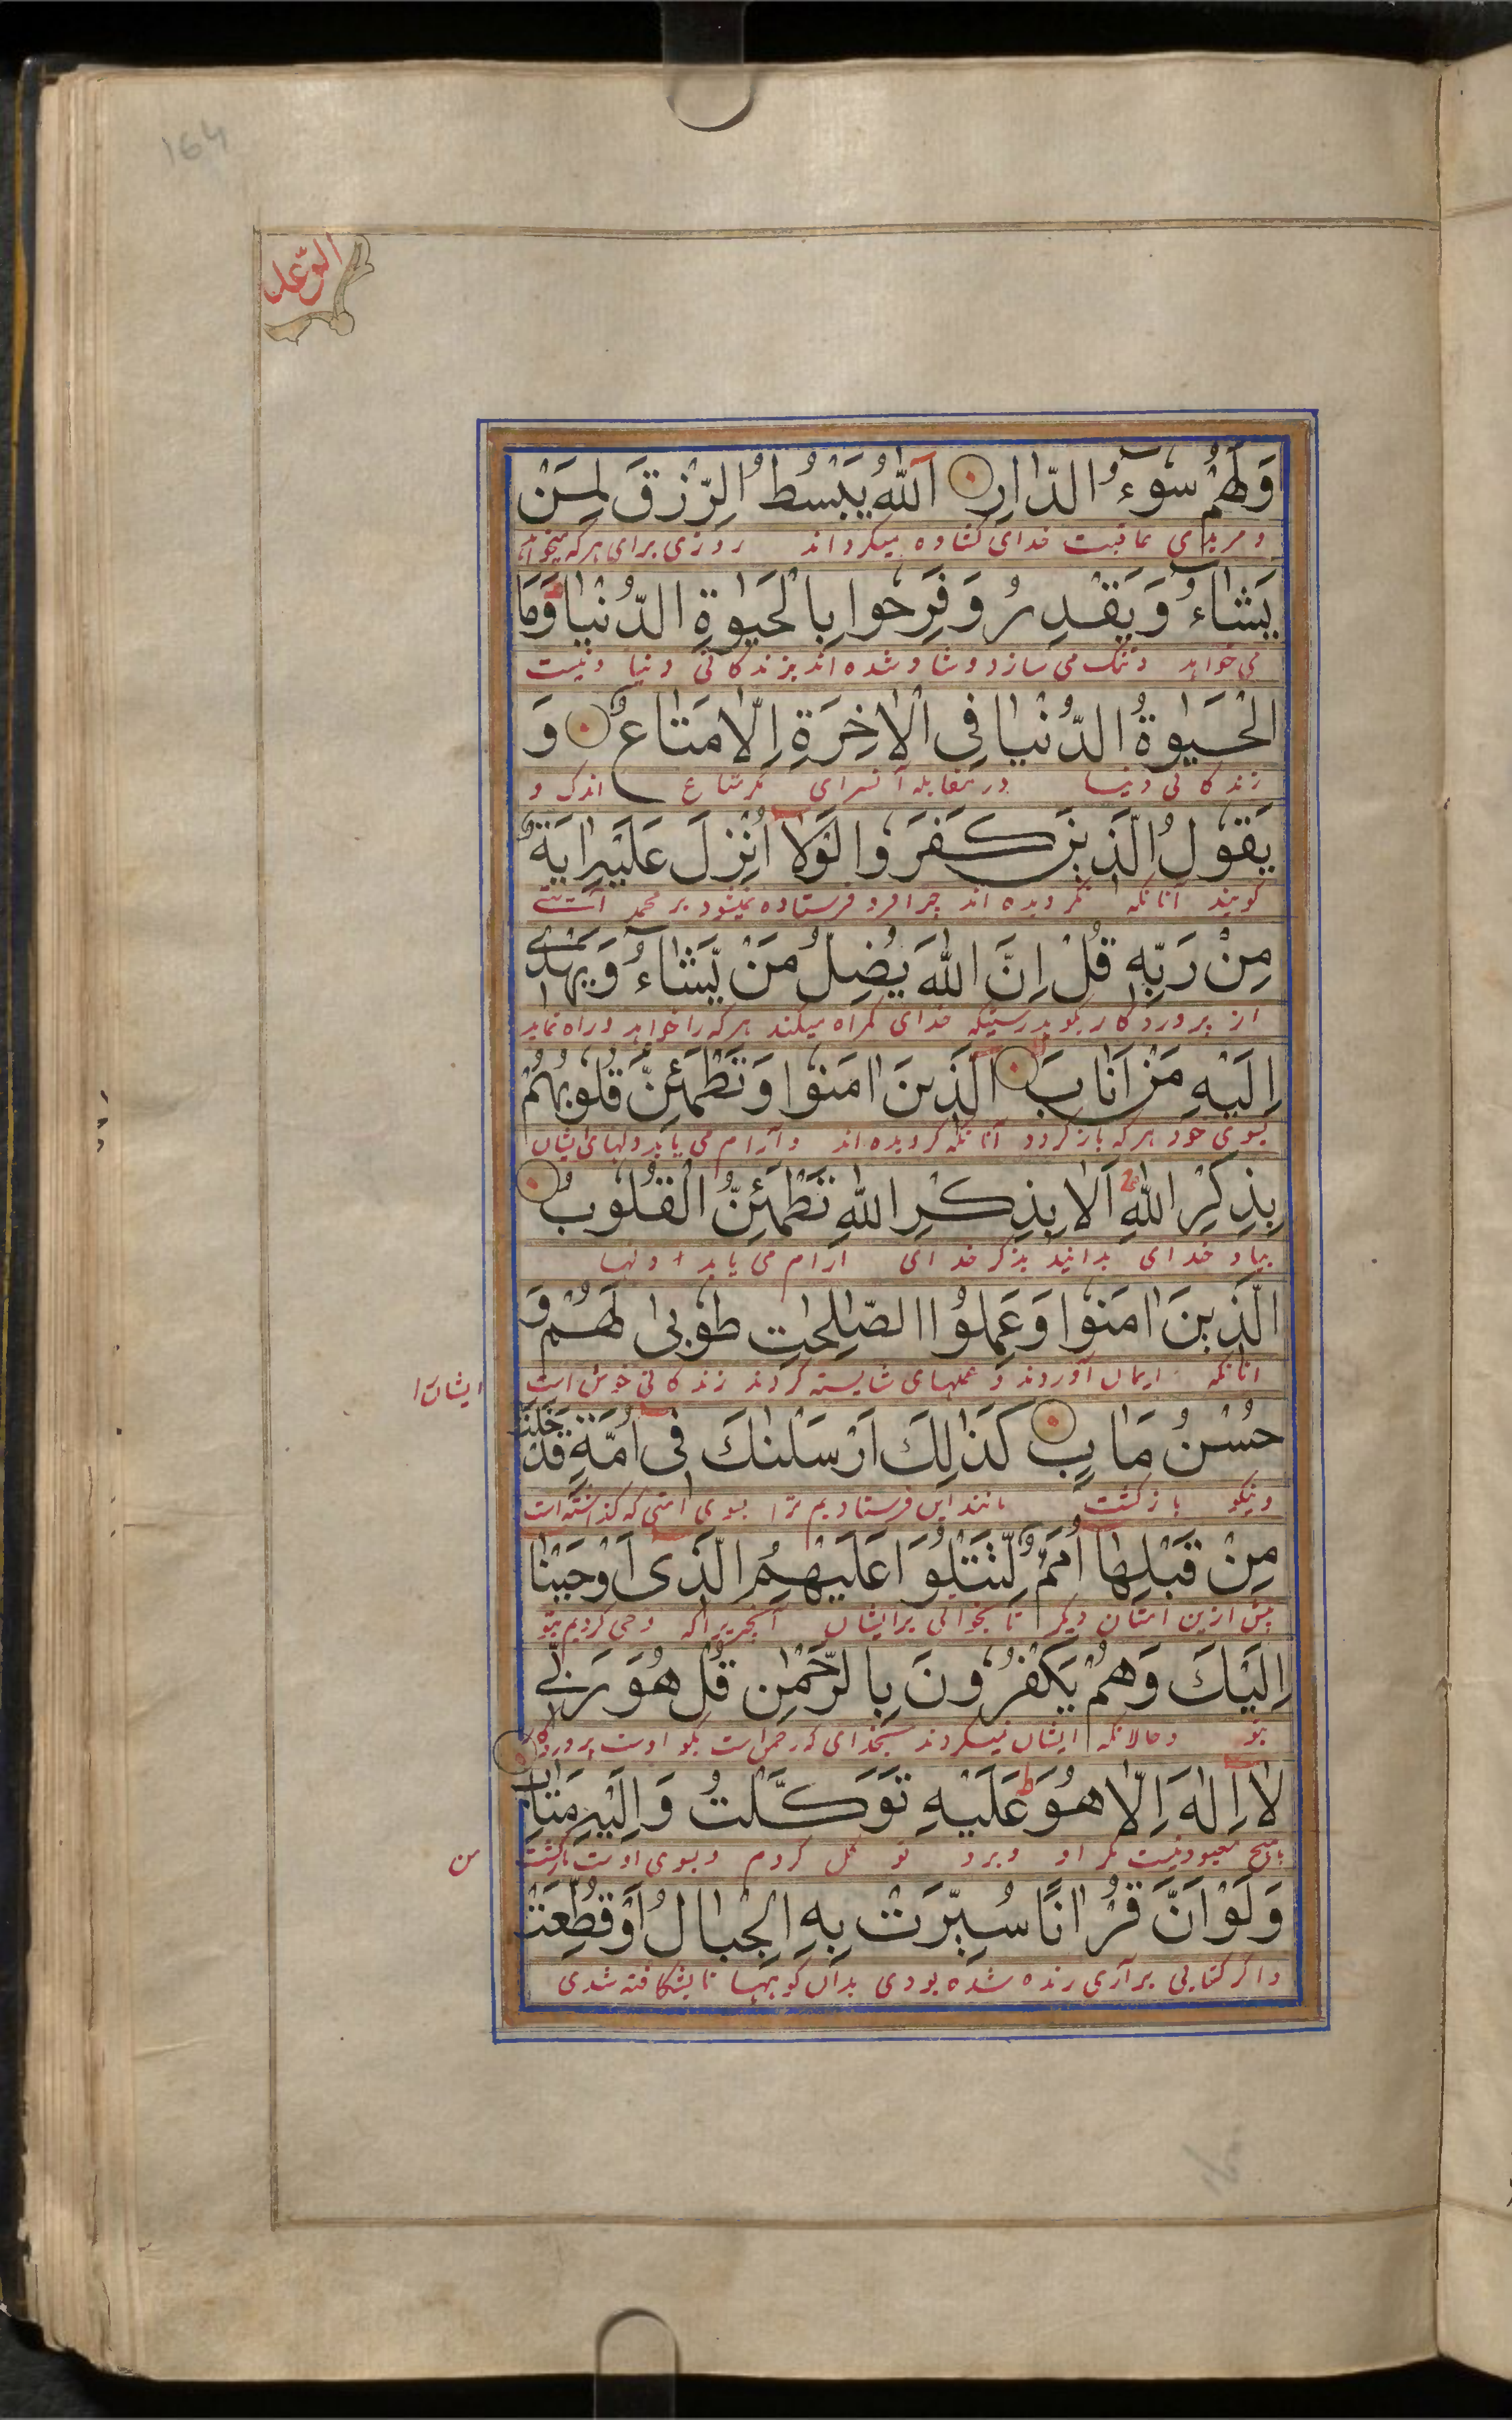 164
الرعد
وَلَهُمْ سُوٓءُ الدَّارِ اَللّٰهُ يَبْسُطُ الرِّزْقَ لِمَنْ
و مر بدی عاقبت خدای کشاده میکرداند روزی برای هر که میخواهد
يَشَآءُ وَيَقْدِرُ وَفَرِحُوا بِالْحَيٰوةِ الدُّنْيَا ط وَمَا
می خواهد و تنک می سازد و شاد شده اند بزندکانی دنیا و نیست
الْحَيٰوةُ الدُّنْيَا فِى الْاٰخِرَةِ اِلَّا مَتَاعٌ وَ
زندکانی دنیا در مقابله آنسرای مکر متاع اندک و
يَقُولُ الَّذِينَ كَفَرُوا لَوْلَآ اُنْزِلَ عَلَيْهِ اٰيَةٌ
کویند آنانکه نکرویده اند چرا فرو فرستاده نمیشود بر محمد آیتی
مِنْ رَبِّهٖ قُلْ اِنَّ اللّٰهَ يُضِلُّ مَنْ يَّشَآءُ وَيَهْدِىٓ
از پروردکار بکو بدرستیکه خدای کمراه میکند هر که را خواهد و راه نماید
اِلَيْهِ مَنْ اَنَابَ الَّذِينَ اٰمَنُوا وَتَطْمَئِنُّ قُلُوبُهُمْ
بسوی خود هر که باز کردد آنانکه کرویده اند و آرام می یابد دلهای ایشان
بِذِكْرِ اللّٰهِ اَلَا بِذِكْرِ اللّٰهِ تَطْمَئِنُّ الْقُلُوبُ
بیاد خدای بدانید بذکر خدای ارام می یابد دلها
الَّذِينَ اٰمَنُوا وَعَمِلُوا الصّٰلِحٰتِ طُوبٰى لَهُمْ وَ
انانکه ایمان آوردند و عملهای شایسته کردند زندکانی خوش است ایشان را
حُسْنُ مَاٰبٍ كَذٰلِكَ اَرْسَلْنٰكَ فِىٓ اُمَّةٍ قَدْ خَلَتْ
و نیکو بازکشت مانند این فرستادیم ترا بسوی امتی که کذشته است
مِنْ قَبْلِهَآ اُمَمٌ لِّتَتْلُوَا عَلَيْهِمُ الَّذِىٓ اَوْحَيْنَآ
پیش ازین امتان دیکر تا بخوانی برایشان آنچیزیرا که وحی کردیم بتو
اِلَيْكَ وَهُمْ يَكْفُرُونَ بِالرَّحْمٰنِ قُلْ هُوَ رَبِّى
بتو و حالانکه ایشان نمیکروند بخدای که رحمن است بکو اوست پروردکار
لَآ اِلٰهَ اِلَّا هُوَ ط عَلَيْهِ تَوَكَّلْتُ وَاِلَيْهِ مَتَابِ
هیچ معبود نیست مکر او و برو توکل کردم و بسوی اوست بازکشت من
وَلَوْ اَنَّ قُرْاٰنًا سُيِّرَتْ بِهِ الْجِبَالُ اَوْ قُطِّعَتْ
و اکر کتابی بر آری رنده شده بودی بدان کوهها تا بشکافته شدی